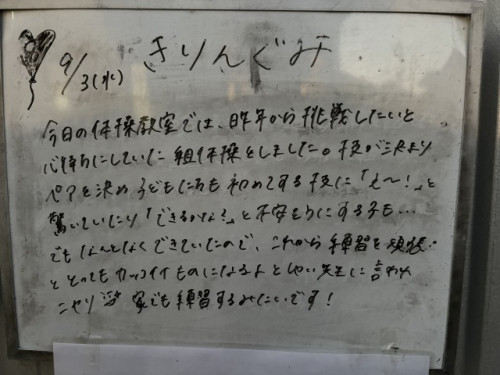 9/3(水) きりんぐみ
今日の体操教室では、昨年から挑戦したいと
心待ちにしていた組体操をしました。技が決まり
ペアを決め子どもたちも初めてする技に「え〜!」と
驚いていたり「できるかな?」と不安そうにする子も…
でもなんとなくできていたので、これから練習を頑張
とってもカッコイイものになるよと 先生に言われ
ニヤリ 家でも練習するみたいです!